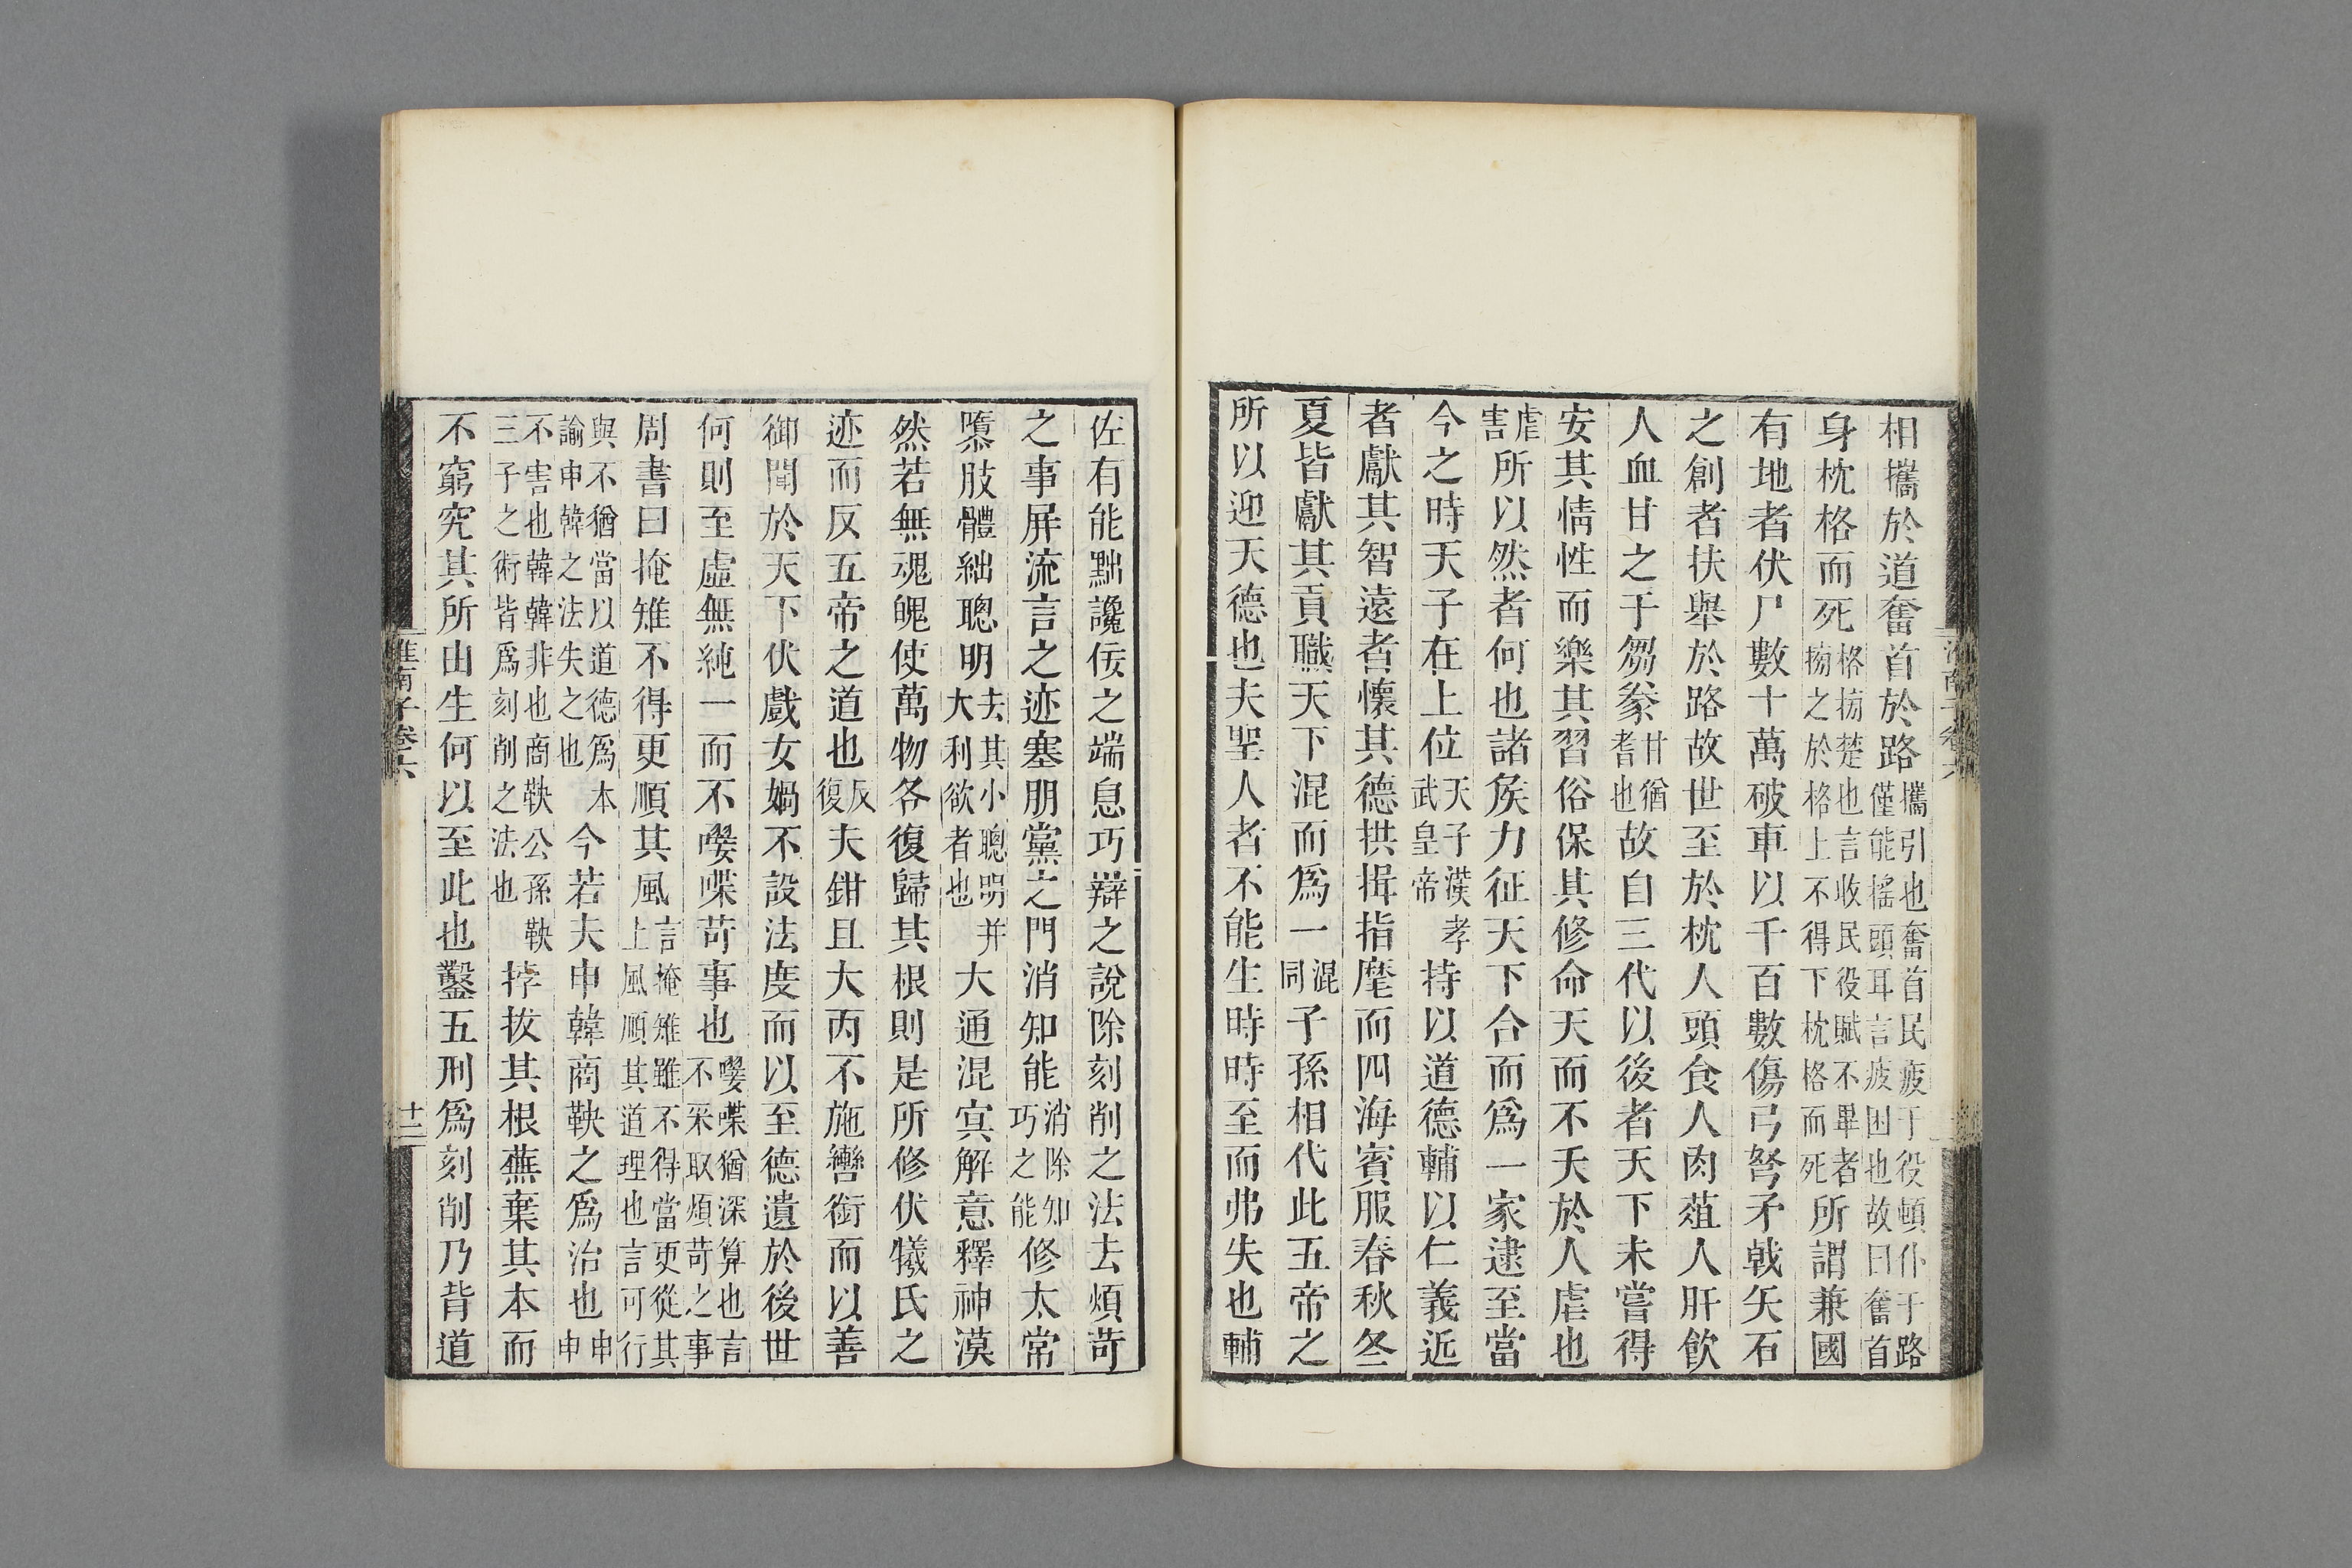 相攜於道奮首於路攜引也奮首民疲于役頓仆于路僅能搖頭耳言疲困也故曰奮首
身枕格而死格搒楚也言收民役賦不畢者搒之於格上不得下枕格而死所謂兼國
有地者伏尸數十萬破車以千百數傷弓弩矛戟矢石
之創者扶舉於路故世至於枕人頭食人肉葅人肝飲
人血甘之于芻豢甘猶耆也故自三代以後者天下未嘗得
安其情性而樂其習俗保其修命天而不夭於人虐也
虐害所以然者何也諸矦力征天下合而爲一家逮至當
今之時天子在上位天子漢孝武皇帝持以道德輔以仁義近
者獻其智遠者懷其德拱揖指麾而四海賓服春秋冬
夏皆獻其貢職天下混而爲一混同子孫相代此五帝之
所以迎天德也夫聖人者不能生時時至而弗失也輔
佐有能黜讒佞之端息巧辯之說除刻削之法去煩苛
之事屏流言之迹塞朋黨之門消知能消除知巧之能修太常
隳肢體絀聰明去其小聰明并大利欲者也大通混冥解意釋神漠
然若無魂魄使萬物各復歸其根則是所修伏犧氏之
迹而反五帝之道也反復夫鉗且大丙不施轡銜而以善
御聞於天下伏戲女媧不設法度而以至德遺於後世
何則至虛無純一而不嚶喋苛事也嚶喋猶深算也言不采取煩苛之事
周書曰掩雉不得更順其風言掩雉雖不得當更從其上風順其道理也言可行
與不猶當以道德爲本諭申韓之法失之也今若夫申韓商鞅之爲治也申申
不害也韓韓非也商鞅公孫鞅三子之術皆爲刻削之法也挬拔其根蕪棄其本而
不窮究其所由生何以至此也鑿五刑爲刻削乃背道
淮南子卷六
十二